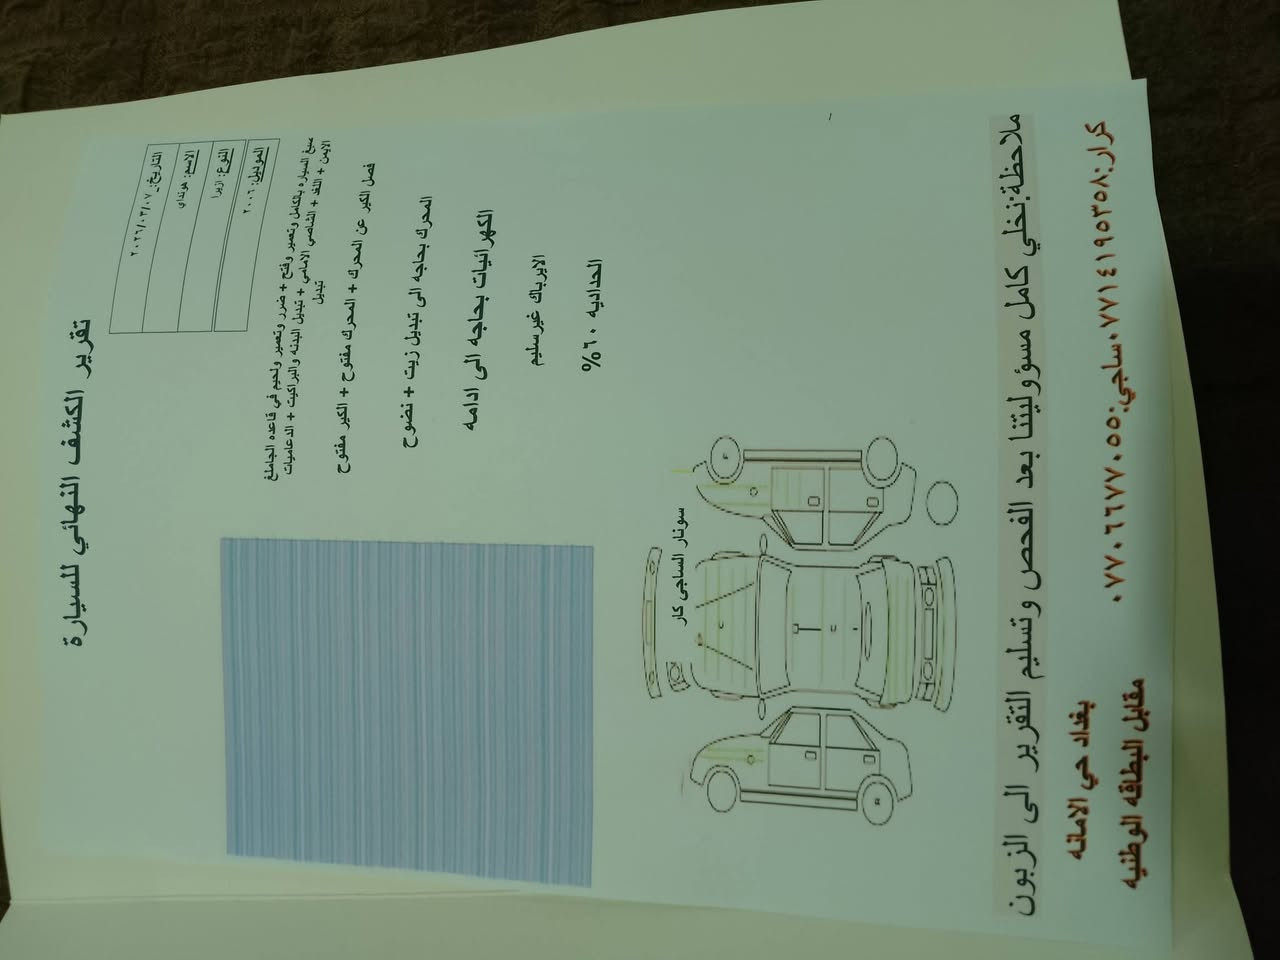 تقرير الكشف النهائي للسيارة
التاريخ: ٢٠٢٦/٠٣/٠٧
الاسم: هونداي
النوع: ازيرا
الموديل: ٢٠٠٦
صبغ السياره بالكامل وتعمير وفتح + ضرر وتعمير ولحيم في قاعده الجاملغ
الايمن + اللقد + الشاصي الامامي + تبديل البدنه والبراكيت + الدعاميات
تبديل
فصل الكير عن المحرك + المحرك مفتوح + الكير مفتوح
المحرك بحاجه الى تبديل زيت + نضوح
الكهرائيات بحاجه الى ادامه
الايرباك غيرسليم
الحداديه ٦٠%
سونار الساجي كار
ملاحظة:نخلي كامل مسؤوليتنا بعد الفحص وتسليم التقرير الى الزبون
كرار:٠٧٧١٤١٩٥٣٥٨ساجي:٠٧٧٠٦٦٧٧٠٥٥
بغداد حي الامانه
مقابل البطاقه الوطنيه